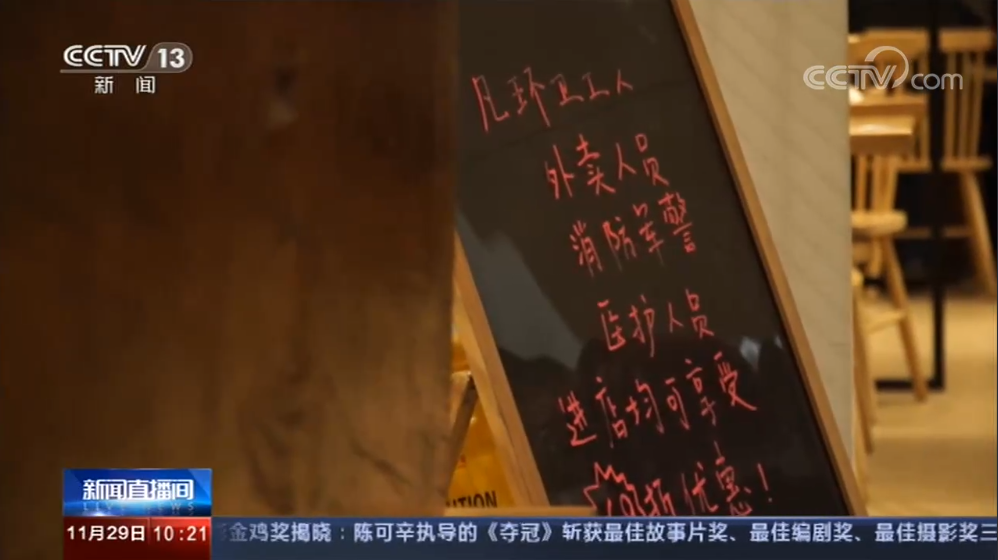 CCTV 13
新闻
CCTV.com
凡环卫工人
外卖人员
消防军警
医护人员
进店均可享受
折优惠！
UTION
新闻直播间
LIVE NEWS
11月29日 10:21
金鸡奖揭晓：陈可辛执导的《夺冠》斩获最佳故事片奖、最佳编剧奖、最佳摄影奖三